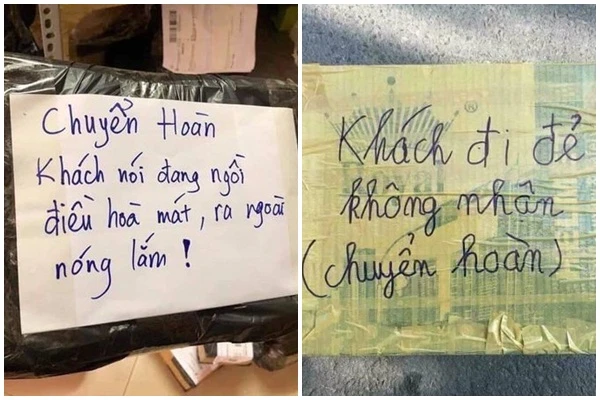 Chuyển Hoàn
Khách nói đang ngồi
điều hoà mát, ra ngoài
nóng lắm !
Khách đi đẻ
không nhân
(chuyển hoàn)